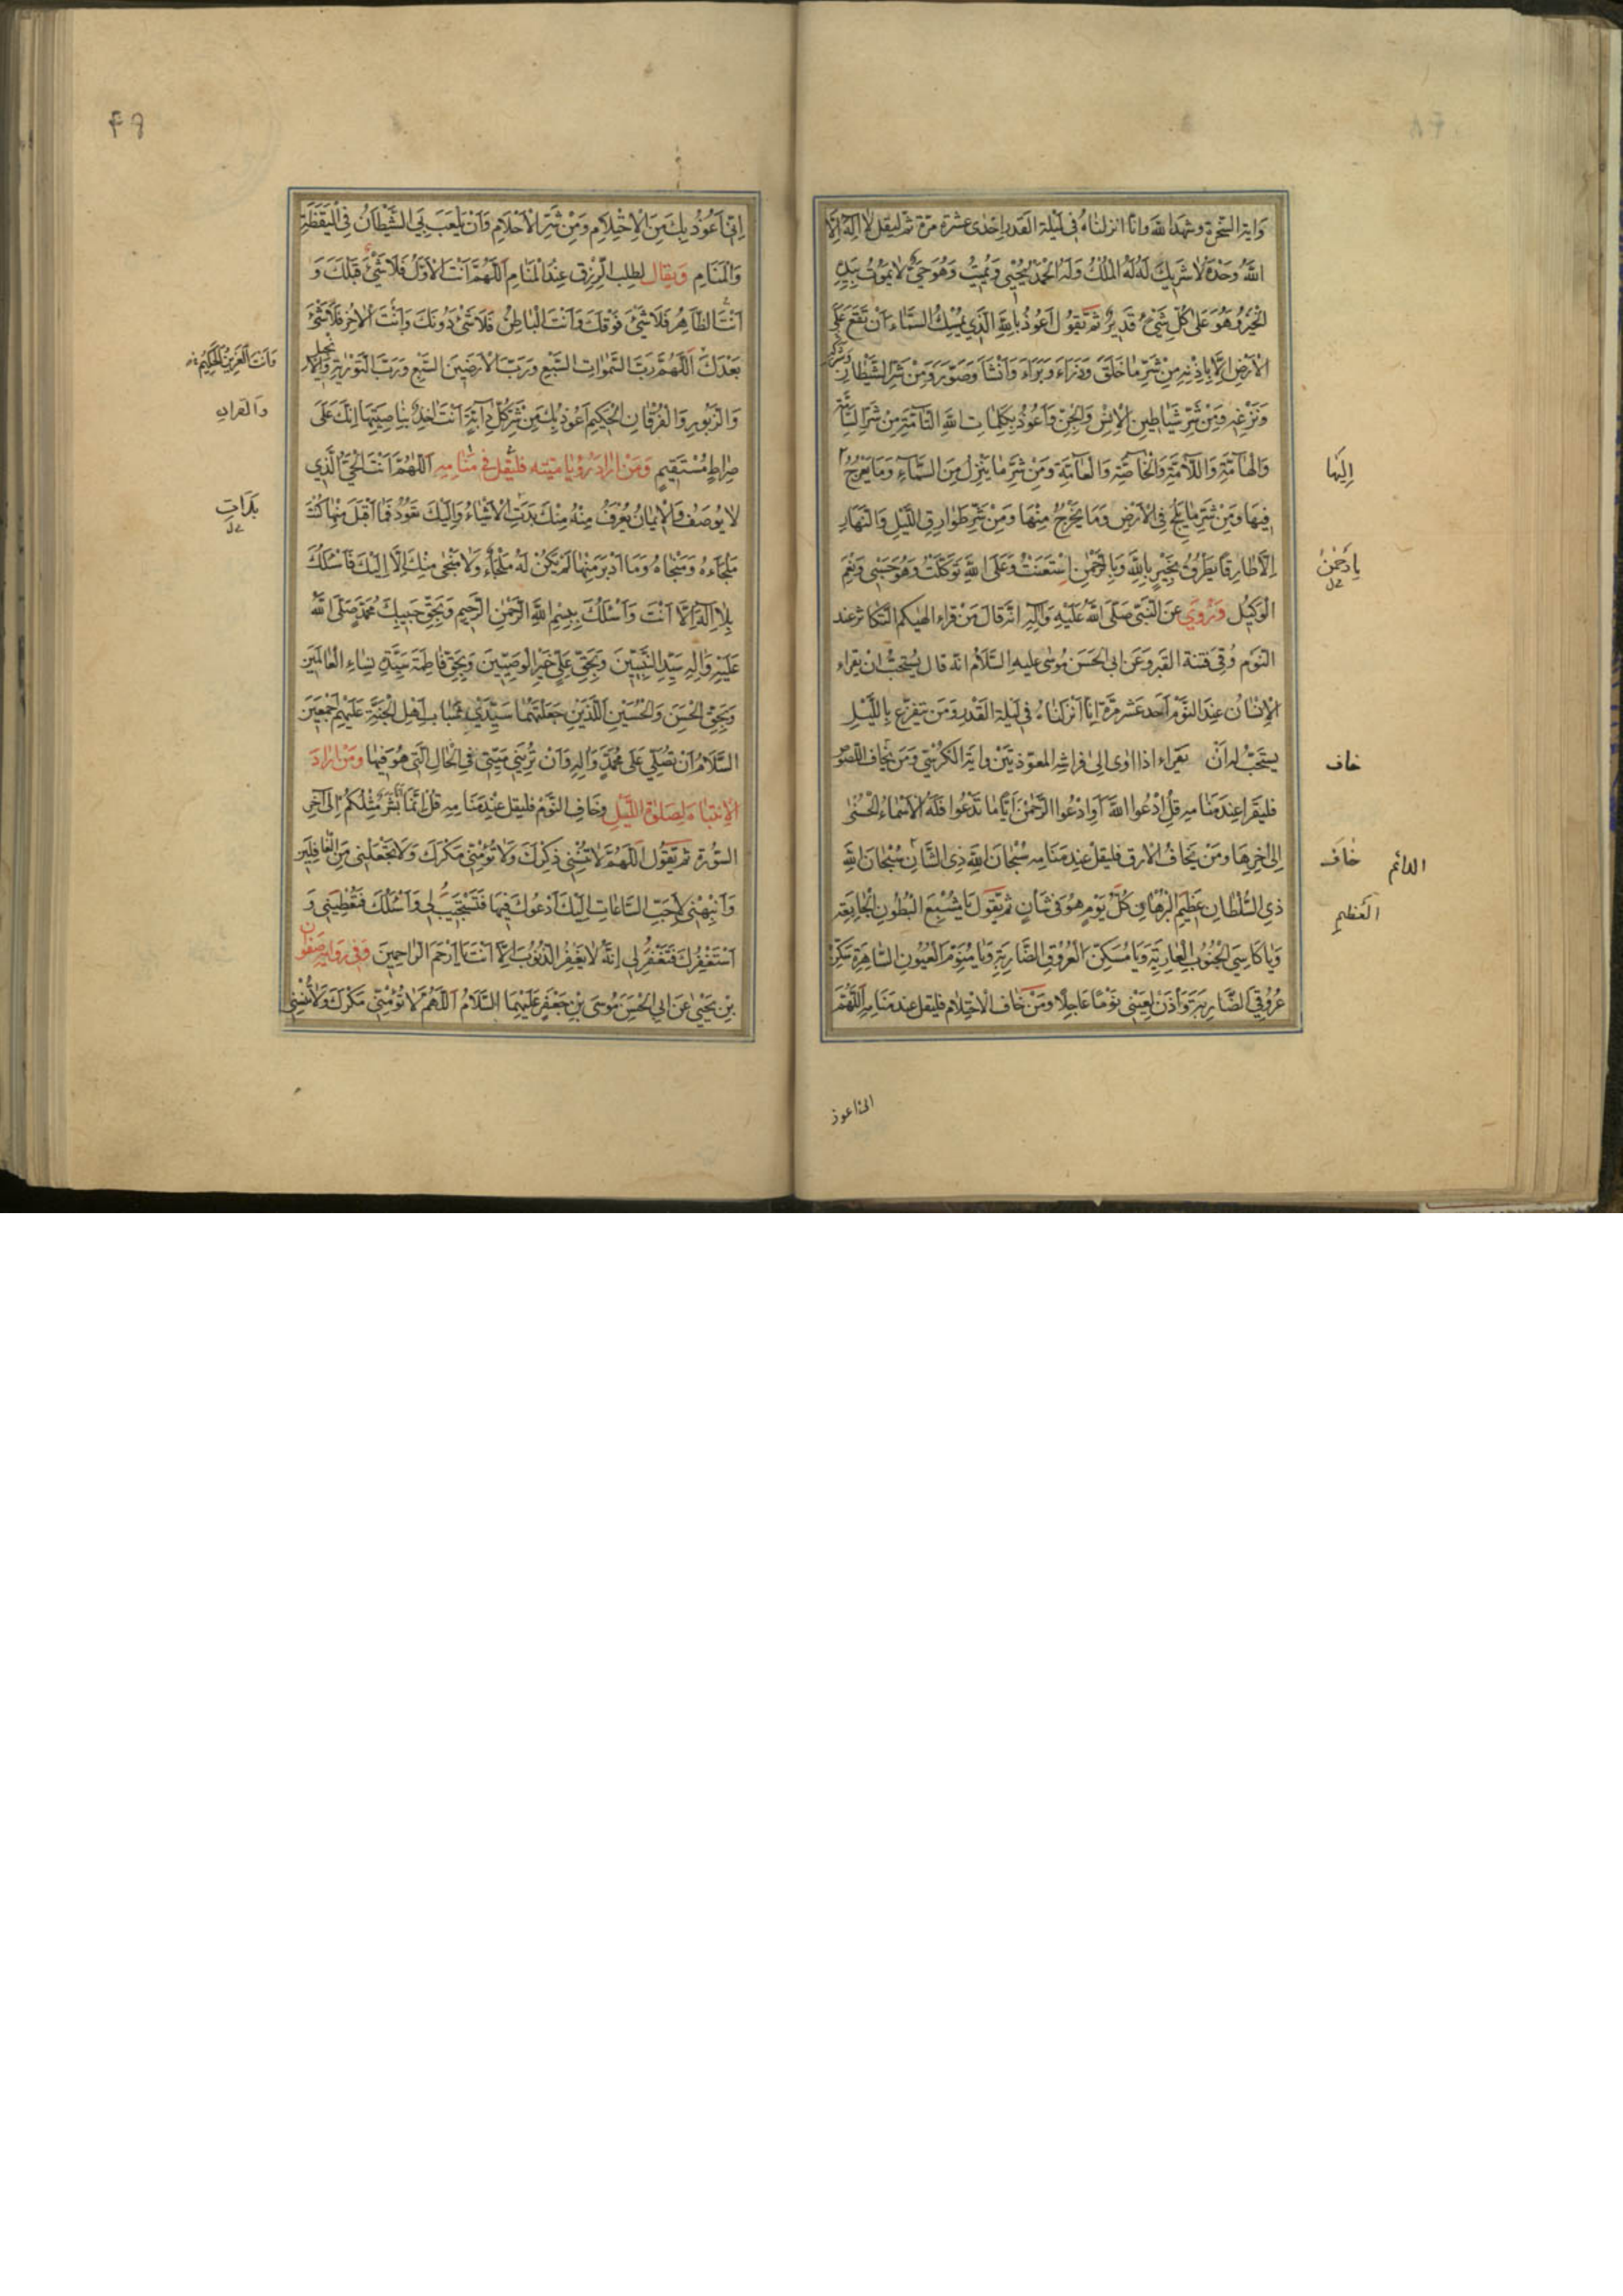 وَايةَ السُّخْرَةِ وشَهِدَ اللهُ وانّا انزلناهُ فى لَيلة القَدر اِحدٰى عشرة مرّة ثم ليقل لا اِلٰهَ اِلَّا
اللهُ وَحْدَهُ لاٰ شَرِيكَ لَهُ لَهُ الْمُلْكُ وَلَهُ الْحَمْدُ يُحْيِى وَيُمِيتُ وَهُوَ حَىٌّ لاٰ يَمُوتُ بِيَدِهِ
الْخَيْرُ وَهُوَ عَلىٰ كُلِّ شَىْءٍ قَدِيرٌ ثم يَقول اَعُوذُ بِاللهِ الَّذِي يُمْسِكُ السَّمَاءَ اَنْ تَقَعَ عَلَى
الْاَرْضِ اِلَّا بِاِذْنِهِ مِنْ شَرِّ مٰا خَلَقَ وَذَرَاءَ وَبَرَاءَ وَاَنْشَاَ وَصَوَّرَ وَمِنْ شَرِّ الشَّيْطٰانِ وَشَرَكِهِ
وَنَزْغِهِ وَمِنْ شَرِّ شَيَاطِينِ الْاِنْسِ وَالْجِنِّ وَاَعُوذُ بِكَلِمٰاتِ اللهِ التَّامَّةِ مِنْ شَرِّ السَّامَّةِ
وَالْهَامَّةِ وَاللَّامَّةِ وَالْخٰاصَّةِ وَالْعَامَّةِ وَمِنْ شَرِّ مٰا يَنْزِلُ مِنَ السَّمَاءِ وَمٰا يَعْرُجُ
اِلَيْهَا
فِيهَا وَمِنْ شَرِّ مٰا يَلِجُ فِي الْاَرْضِ وَمٰا يَخْرُجُ مِنْهَا وَمِنْ شَرِّ طَوَارِقِ اللَّيْلِ وَالنَّهٰارِ
اِلَّا طٰارِقًا يَطْرُقُ بِخَيْرٍ بِاللهِ وَبِالرَّحْمٰنِ اسْتَعَنْتُ وَعَلَى اللهِ تَوَكَّلْتُ وَهُوَ حَسْبِي وَنِعْمَ
يارَحْمٰنُ
الْوَكِيل وَرُوِيَ عَن النَّبِيّ صَلَّى اللهُ عَلَيْهِ وَاٰلِهِ انّه قالَ مَن قَراء الهٰيكم التكاثر عند
النّوم وُقِيَ فتنة القبر وَعَن ابى الحَسَن مُوسٰى عليهِ السَّلاٰم انّه قال يُستحبُّ ان يقراء
الاِنسٰان عِندَ النّوم اَحَد عَشر مرّة انّا اَنزلناهُ فى لَيلة القَدر وَمَن يتفزّع بِاللَّيْلِ
يستَحبّ له اَنْ يَقراء اذا اوى الى فراشه المعوّذتَيْن واية الكرسى وَمَن يخاف اللّصوص
خاف
فليَقرا عِندَ مَنٰامِه قُلِ ادْعُوا اللهَ اَوِ ادْعُوا الرَّحْمٰنَ اَيًّامٰا تَدْعُوا فَلَهُ الْاَسْمَاءُ الْحُسْنٰى
اِلىٰ اٰخِرِهَا ومَنْ يَخافُ الارق فليقل عِندَ مَنَامِه سُبْحَانَ اللهِ ذِي الشَّانِ سُبْحَانَ اللهِ
خافَ
الدائم
ذِي السُّلْطٰانِ عَظِيمِ الْبُرْهَانِ كُلَّ يَوْمٍ هُوَ فِي شَأنٍ ثم يَقول يَا مُشْبِعَ الْبُطُونِ الْجٰايِعَةِ
العَظيم
وَيَا كَاسِيَ الْجُنُوبِ الْعَارِيَةِ وَيَا مُسَكِّنَ الْعُرُوقِ الضَّارِبَةِ وَيَا مُنَوِّمَ الْعُيُونِ السَّاهِرَةِ سَكِّنْ
عُرُوقِيَ الضَّارِبَةَ وَاْذَنْ لِعَيْنِي نَوْمًا عَاجِلًا ومَنْ خٰافَ الاحتِلام فليقل عِند مَنَامِه اَللّٰهُمَّ
انى اعوذ
۴۹
اِنِّي اَعُوذُ بِكَ مِنَ الْاِحْتِلٰامِ وَمِنْ شَرِّ الْاَحْلَامِ وَاَنْ يَلْعَبَ بِيَ الشَّيْطَانُ فِي الْيَقَظَةِ
وَالْمَنَامِ وَيقال لِطلب الرّزق عِندَ المَنَامِ اَللّٰهُمَّ اَنْتَ الْاَوَّلُ فَلَا شَىْءَ قَبْلَكَ وَ
اَنْتَ الظَّاهِرُ فَلَا شَىْءَ فَوْقَكَ وَاَنْتَ الْبٰاطِنُ فَلَا شَىْءَ دُونَكَ وَاَنْتَ الْاٰخِرُ فَلَا شَىْءَ
بَعْدَكَ اَللّٰهُمَّ رَبَّ السَّمٰوَاتِ السَّبْعِ وَرَبَّ الْاَرَضِينَ السَّبْعِ وَرَبَّ التَّوْرٰيةِ وَالْاِنْجِيلِ
وَاَنْتَ الْعَزِيزُ الْحَكِيمُ
وَالزَّبُورِ وَالْفُرْقٰانِ الْحَكِيمِ اَعُوذُ بِكَ مِنْ شَرِّ كُلِّ دٰابَّةٍ اَنْتَ اٰخِذٌ بِنٰاصِيَتِهَا اِنَّكَ عَلىٰ
وَالقرانِ
صِرَاطٍ مُسْتَقِيمٍ وَمَنْ اَرادَ رُؤيا ميّته فليقُل فى مَنَامِه اَللّٰهُمَّ اَنْتَ الْحَيُّ الَّذِي
لا يُوصَفُ وَالْاِيمٰانُ يُعْرَفُ مِنْهُ مِنْكَ بَدَتِ الْاَشْيَاءُ وَاِلَيْكَ تَعُودُ فَمَا اَقْبَلَ مِنْهَا كُنْتَ
بَدَأتِ
مَلْجَاءَهُ وَمَنْجٰاهُ وَمَا اَدْبَرَ مِنْهَا لَمْ يَكُنْ لَهُ مَلْجَاءٌ وَلاٰ مَنْجٰى مِنْكَ اِلَّا اِلَيْكَ فَاَسْئَلُكَ
بِلاٰ اِلٰهَ اِلَّا اَنْتَ وَاَسْئَلُكَ بِبِسْمِ اللهِ الرَّحْمٰنِ الرَّحِيمِ وَبِحَقِّ حَبِيبِكَ مُحَمَّدٍ صَلَّى اللهُ
عَلَيْهِ وَاٰلِهِ سَيِّدِ النَّبِيِّينَ وَبِحَقِّ عَلِيٍّ خَيْرِ الْوَصِيِّينَ وَبِحَقِّ فَاطِمَةَ سَيِّدَةِ نِسَاءِ الْعٰالَمِينَ
وَبِحَقِّ الْحَسَنِ وَالْحُسَيْنِ اللَّذَيْنِ جَعَلْتَهُمٰا سَيِّدَيْ شَبَابِ اَهْلِ الْجَنَّةِ عَلَيْهِمْ اَجْمَعِينَ
السَّلَامُ اَنْ تُصَلِّيَ عَلىٰ مُحَمَّدٍ وَاٰلِهِ وَاَنْ تُرِيَنِي مَيِّتِي فِي الْحَالِ الَّتِي هُوَ فِيهَا وَمَنْ اَرادَ
الاِنتِباهَ لِصَلوٰةِ اللَّيْلِ وخَافَ النَّوْم فليقل عِندَ مَنامِه قُلْ اِنَّمَا اَنَا بَشَرٌ مِثْلُكُمْ اِلىٰ اٰخِر
السّورة ثم يَقُول اَللّٰهُمَّ لَا تُنْسِنِي ذِكْرَكَ وَلَا تُؤْمِنِّي مَكْرَكَ وَلَا تَجْعَلْنِي مِنَ الْغٰافِلِينَ
وَاَنْبِهْنِي لِاَحَبِّ السَّاعَاتِ اِلَيْكَ اَدْعُوكَ فِيهَا فَتَسْتَجِيبَ لِي وَاَسْئَلُكَ فَتُعْطِيَنِي وَ
اَسْتَغْفِرُكَ فَتَغْفِرَ لِي اِنَّهُ لَا يَغْفِرُ الذُّنُوبَ اِلَّا اَنْتَ يَا اَرْحَمَ الرَّاحِمِينَ وَفى رِوايَةِ صَفوان
بنِ يَحْيىٰ عَن ابى الحَسَنَ مُوسَى بْنِ جَعْفَرٍ عَلَيْهِمَا السَّلَامُ اَللّٰهُمَّ لَا تُؤْمِنِّي مَكْرَكَ وَلَا تُنْسِنِي